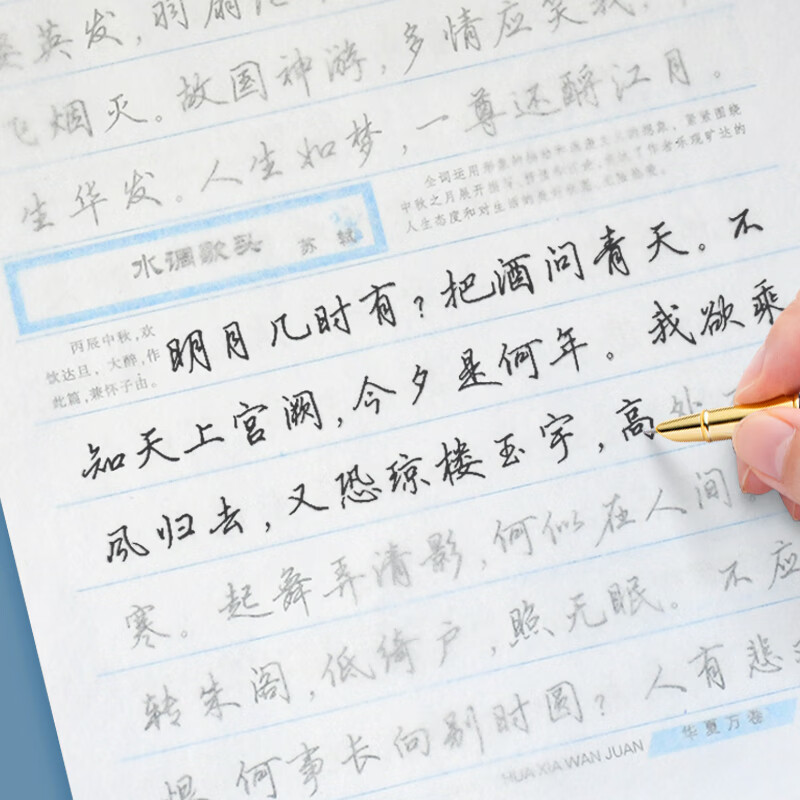 英发，羽扇
烟灭。故国神游，多情应笑我，
生华发。人生如梦，一尊还酹江月。
水调歌头 苏轼
中秋之月展开
人生态度和对生活的
作者乐观旷达的
丙辰中秋，欢
饮达旦，大醉，作
此篇，兼怀子由。
明月几时有？把酒问青天。不
知天上宫阙，今夕是何年。我欲乘
风归去，又恐琼楼玉宇，高处
寒。起舞弄清影，何似在人间。
转朱阁，低绮户，照无眠。不应
恨，何事长向别时圆？人有悲
华夏万卷
HUA XIA WAN JUAN